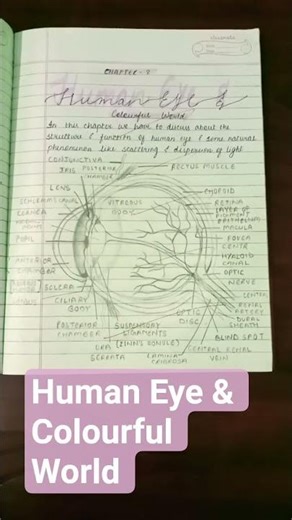 CHAPTER-
Human Eye &
Human Eye &
Colourful World
In this chapter we have to discuss about the
structure & function of human eye & some natural
phenomenon like scattering & dispersion of light
CONJUNCTIVA
IRIS POSTERIOR CHAMBER RECTUS MUSCLE
LENS CHOROID
CANAL VITREOUS BODY RETINA
CORNEA LAYER OF PIGMENT EPITHELIUMS
MACULA
PUPIL FOVEA CENTR
ANTERIOR CHAMBER HYALOID CANAL
OPTIC NERVE
SCLERA
CILIARY BODY OPTIC DISC CENTER RETINAL ARTERY
DURAL SHEATH
POSTERIOR CHAMBER SUSPENSORY LIGAMENTS BLIND SPOT
ORA SERRATA (ZINN'S ZONULE) CENTRAL RETINAL VEIN
LAMINA CRIBROSA
Human Eye &
Colourful
World